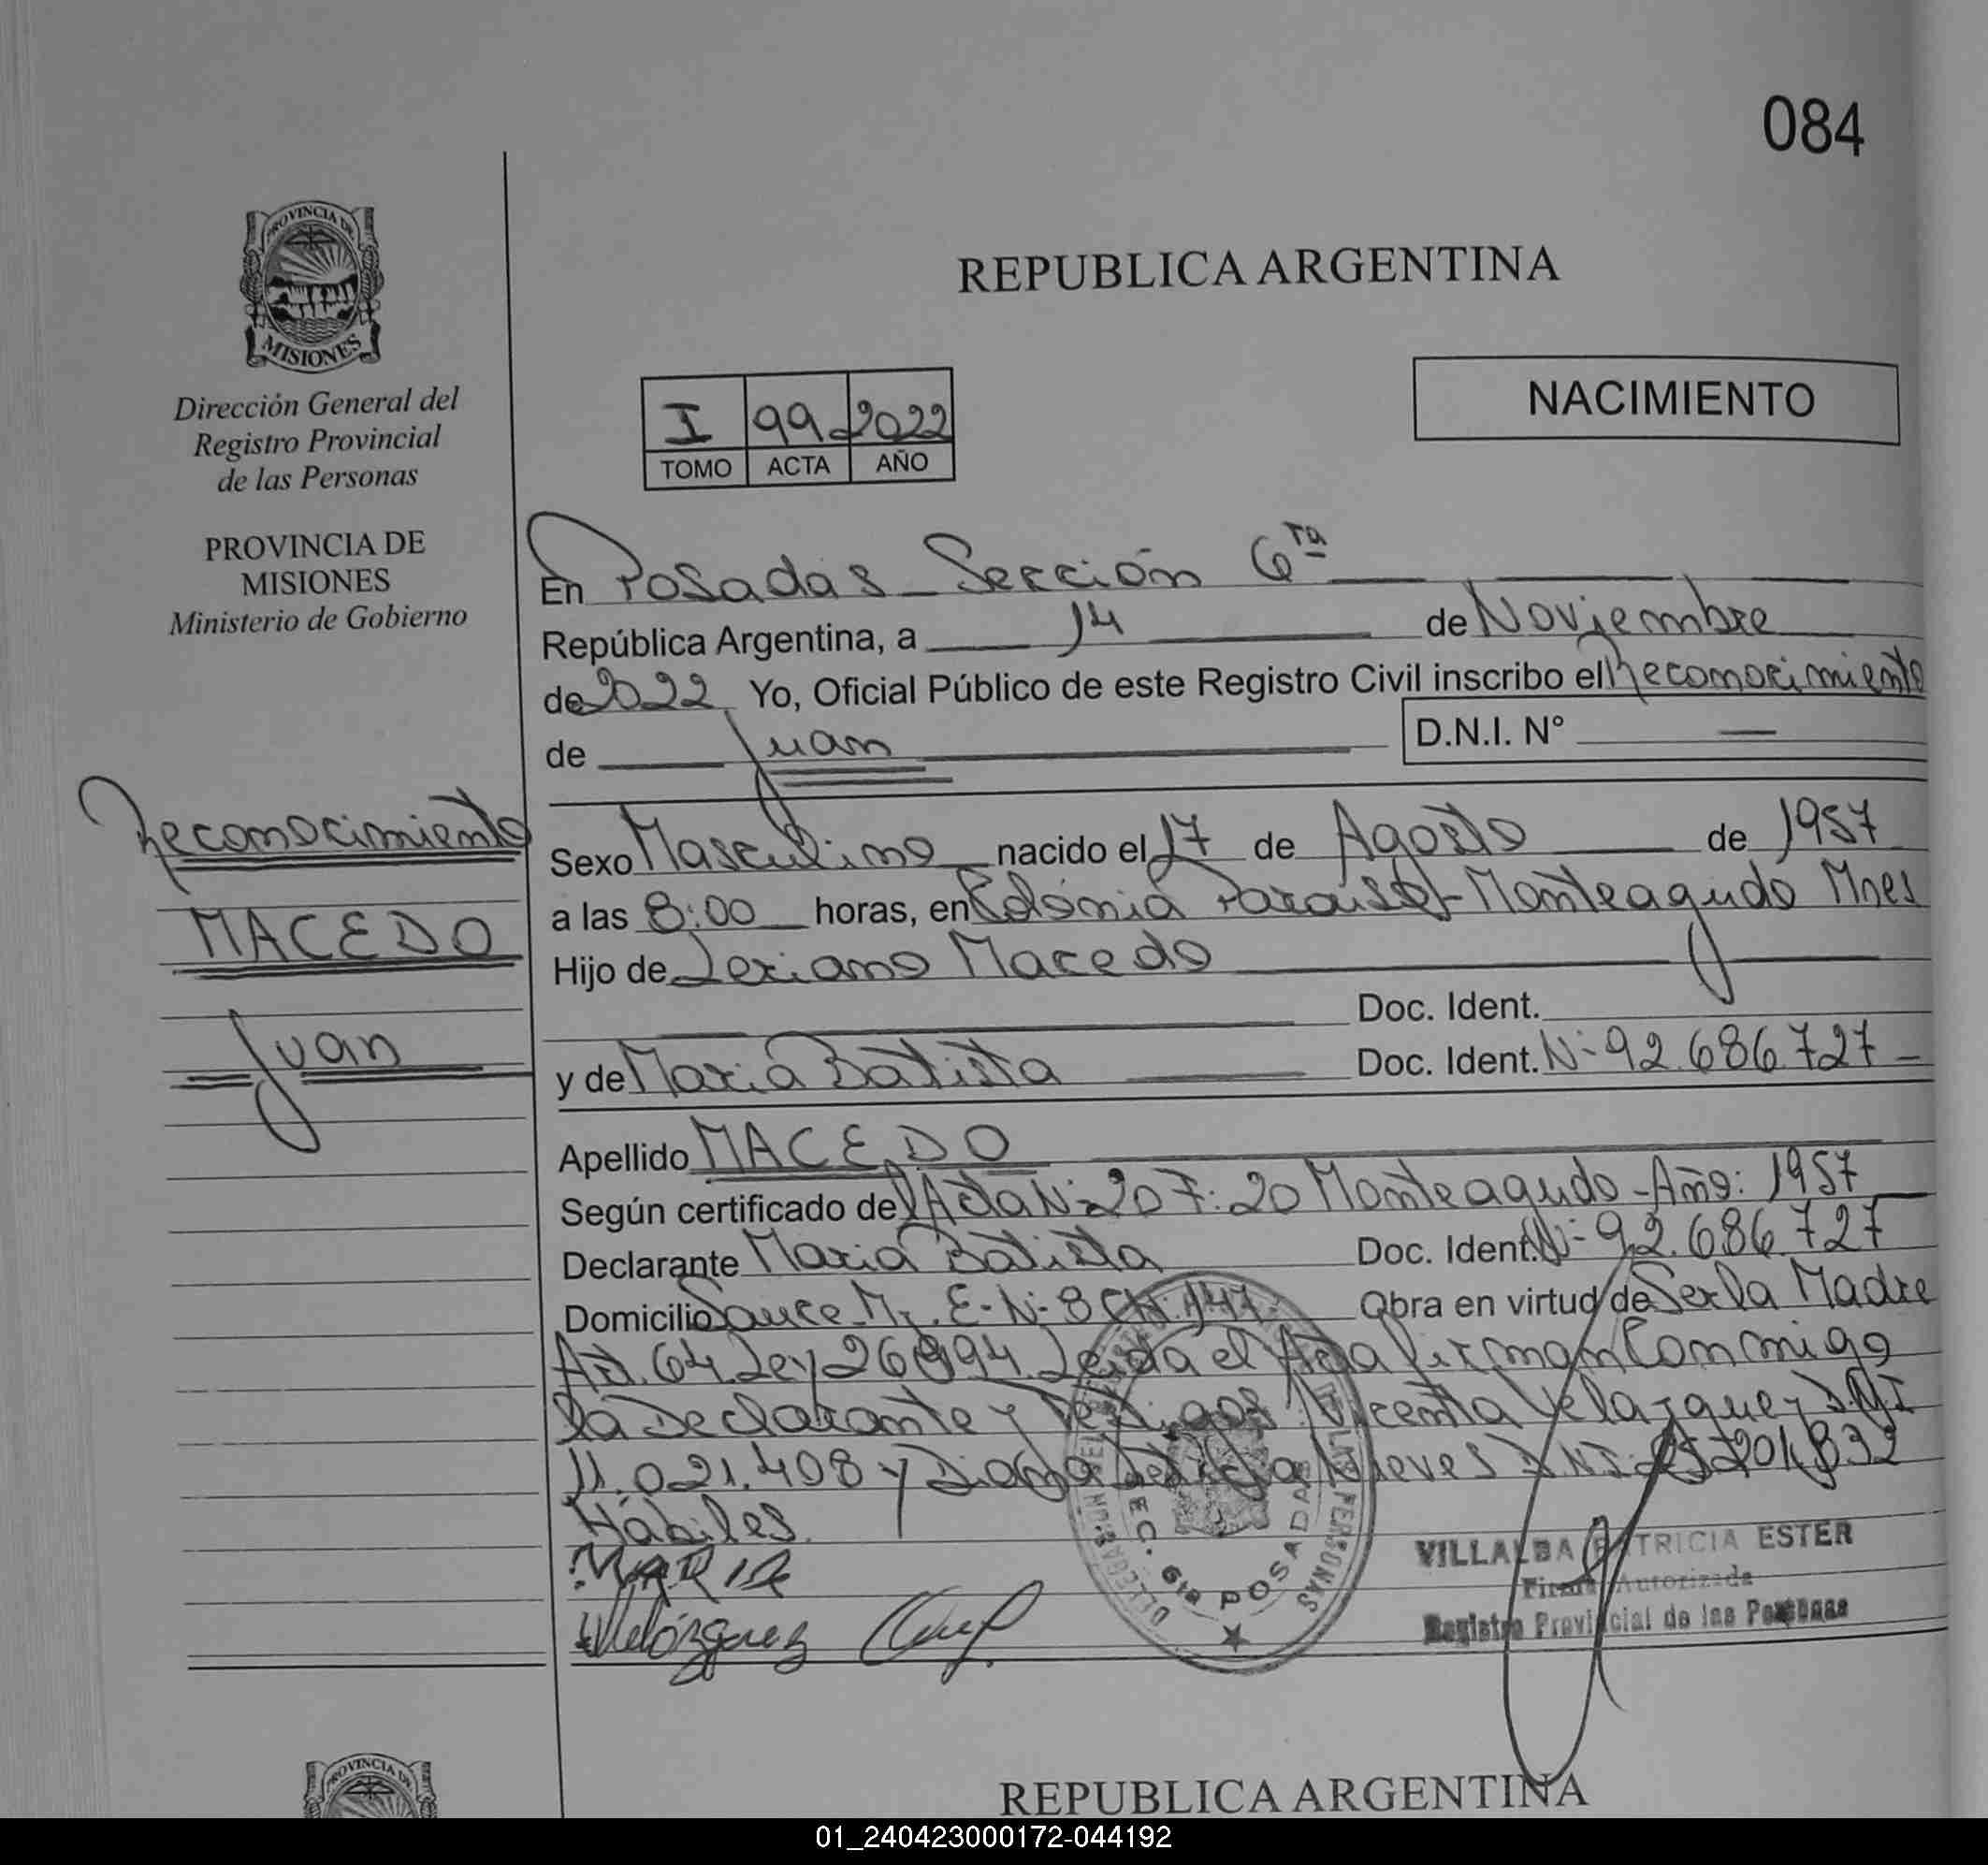 084
PROVINCIA DE
MISIONES
Dirección General del
Registro Provincial
de las Personas
PROVINCIA DE
MISIONES
Ministerio de Gobierno
Reconocimiento
MACEDO
Juan
REPUBLICA ARGENTINA
I 99 2022
TOMO ACTA AÑO
NACIMIENTO
En Posadas - Sección 6ta
República Argentina, a 14 de Noviembre
de 2022 Yo, Oficial Público de este Registro Civil inscribo el Reconocimiento
de Juan D.N.I. N° —
Sexo Masculino nacido el 17 de Agosto de 1957
a las 8:00 horas, en Colonia Paraíso - Monteagudo Mnes
Hijo de Leriano Macedo
Doc. Ident.
y de Maria Batista Doc. Ident. N- 92.686.727 -
Apellido MACEDO
Según certificado del Acta N- 20 F: 20 Monteagudo - Año: 1957
Declarante Maria Batista Doc. Ident. N- 92.686.727
Domicilio Sauce Mz. E- N- 8 CH. 147 Obra en virtud de Ser la Madre
Art. 64 Ley 26994 Leida el Acta firman Conmigo
la Declarante y Testigos Vicenta Velazquez D.N.I
11.021.408 y Diana Leticia Nieves D.N.I.
Hábiles.
MARIA
Velázquez
SEC. 6ta POSADAS
VILLALBA PATRICIA ESTER
Firma Autorizada
Registro Provincial de las Personas
PROVINCIA DE
REPUBLICA ARGENTINA
01_240423000172-044192